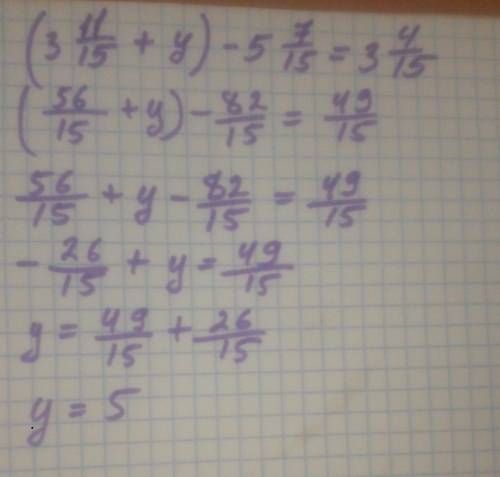 (3 11/15 + y) - 5 7/15 = 3 4/15
(56/15 + y) - 82/15 = 49/15
56/15 + y - 82/15 = 49/15
- 26/15 + y = 49/15
y = 49/15 + 26/15
y = 5